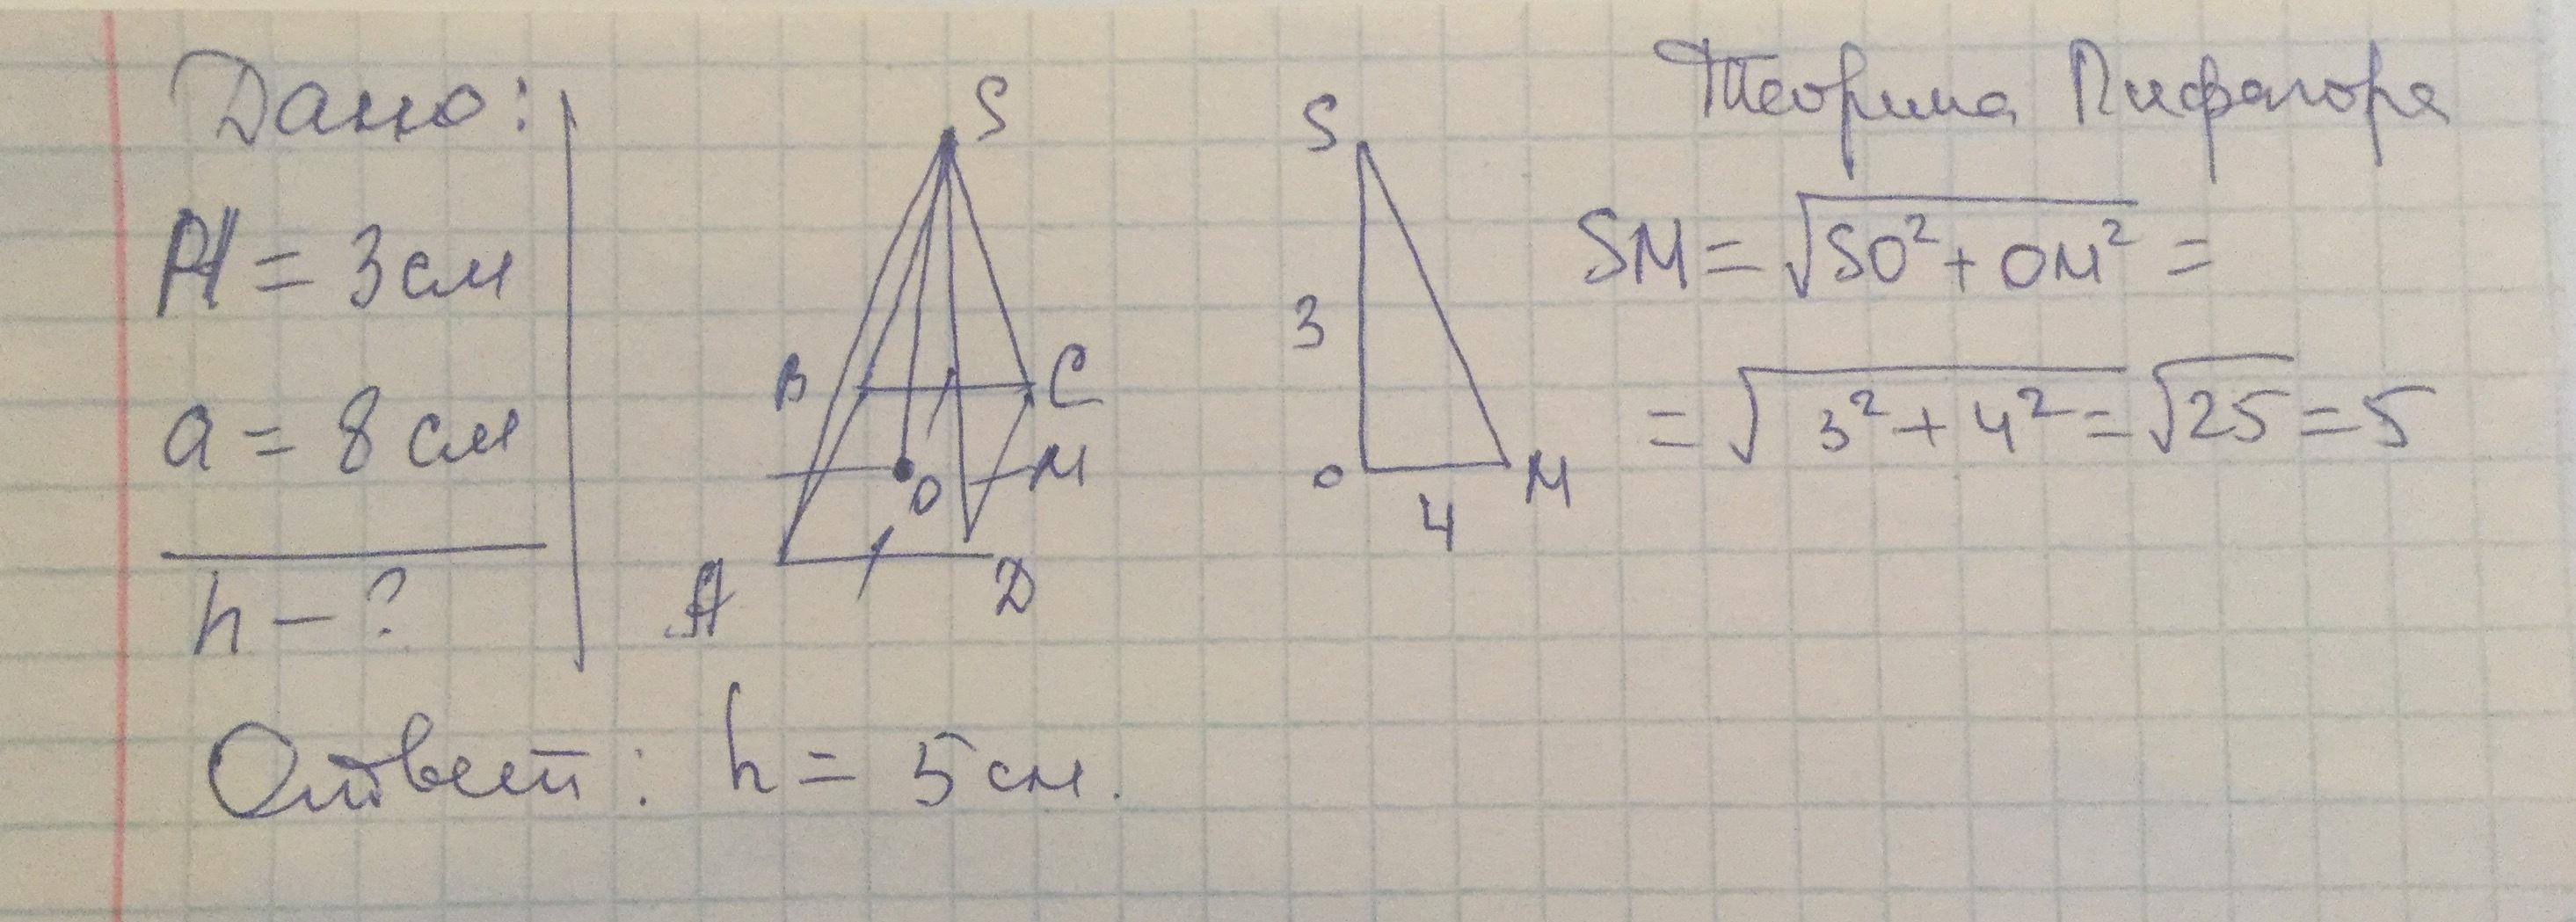 Дано:
H = 3 см
a = 8 см
h - ?
S
B
C
O
M
A
D
S
3
O
4
M
Теорима Пифагора
SM = √SO² + OM² =
= √3² + 4² = √25 = 5
Ответ: h = 5 см.